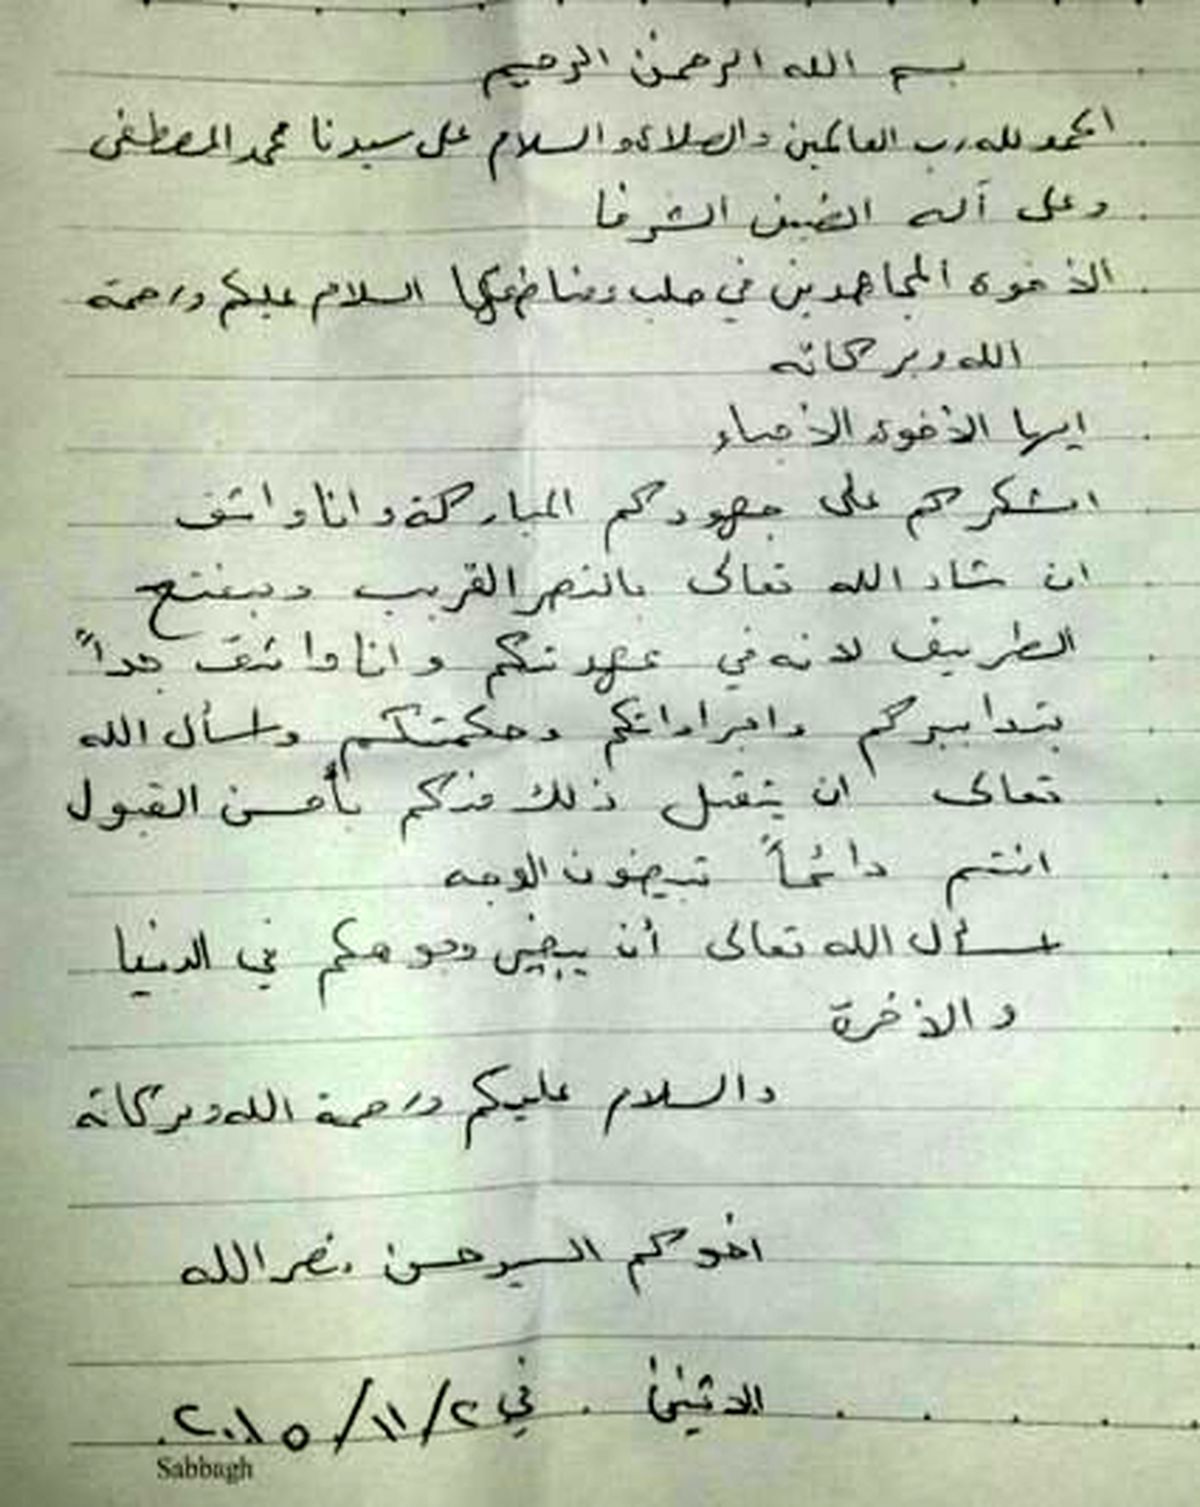 بسم الله الرحمن الرحيم
الحمد لله رب العالمين والصلاة والسلام على سيدنا محمد المصطفى
وعلى آله الشرفا
الاخوة المجاهدين في حلب ومناطقها السلام عليكم ورحمة
الله وبركاته
ايها الاخوة الاحباء
اشكركم على جهودكم المباركة وانا واثق
ان شاء الله تعالى بالنصر القريب وبفتح
الطريق لانه في عهدتكم وانا واثق جداً
بتدابيركم واجراءاتكم وحكمتكم واسأل الله
تعالى ان يتقبل ذلك منكم بأحسن القبول
انتم دائماً تبيضون الوجه
اسأل الله تعالى أن يبيض وجوهكم في الدنيا
والاخرة
والسلام عليكم ورحمة الله وبركاته
اخوكم السيد حسن نصرالله
الاثنين في ٢/١١/٢٠١٥
Sabbagh